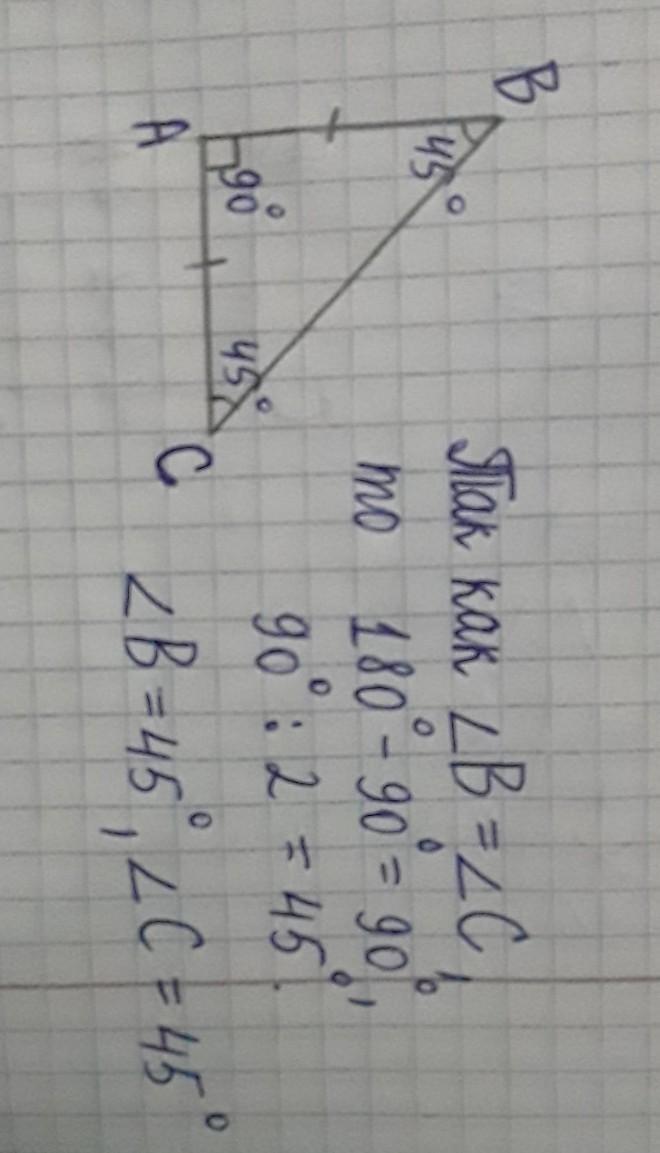 B
45°
A
90°
45°
C
Так как ∠B = ∠C,
то 180° - 90° = 90°,
90° : 2 = 45°.
∠B = 45°, ∠C = 45°